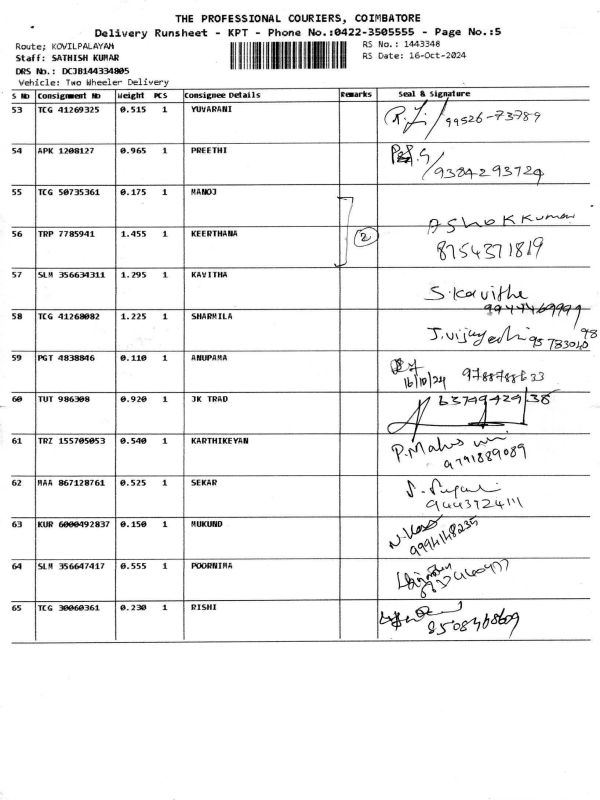 THE PROFESSIONAL COURIERS, COIMBATORE
Delivery Runsheet - KPT - Phone No.:0422-3505555 - Page No.:5
Route; KOVILPALAYAM
RS No.: 1443348
Staff: SATHISH KUMAR
RS Date: 16-Oct-2024
DRS No.: DCJB144334805
Vehicle: Two Wheeler Delivery
S No Consignment No Weight PCS Consignee Details Remarks Seal & Signature
53 TCG 41269325 0.515 1 YUVARANI 99526-73789
54 APK 1208127 0.965 1 PREETHI 9384293724
55 TCG 50735361 0.175 1 MANOJ
56 TRP 7785941 1.455 1 KEERTHANA 2 Ashok Kumar
8754371819
57 SLM 356634311 1.295 1 KAVITHA S.Kavitha
9944469999
58 TCG 41268082 1.225 1 SHARMILA
59 PGT 4838846 0.110 1 ANUPAMA
16/10/24 9788788633
60 TUT 986308 0.920 1 JK TRAD
61 TRZ 155705053 0.540 1 KARTHIKEYAN
9791889089
62 MAA 867128761 0.525 1 SEKAR
9443724111
63 KUR 6000492837 0.150 1 MUKUND
9994148235
64 SLM 356647417 0.555 1 POORNIMA
65 TCG 30060361 0.230 1 RISHI
8508468609